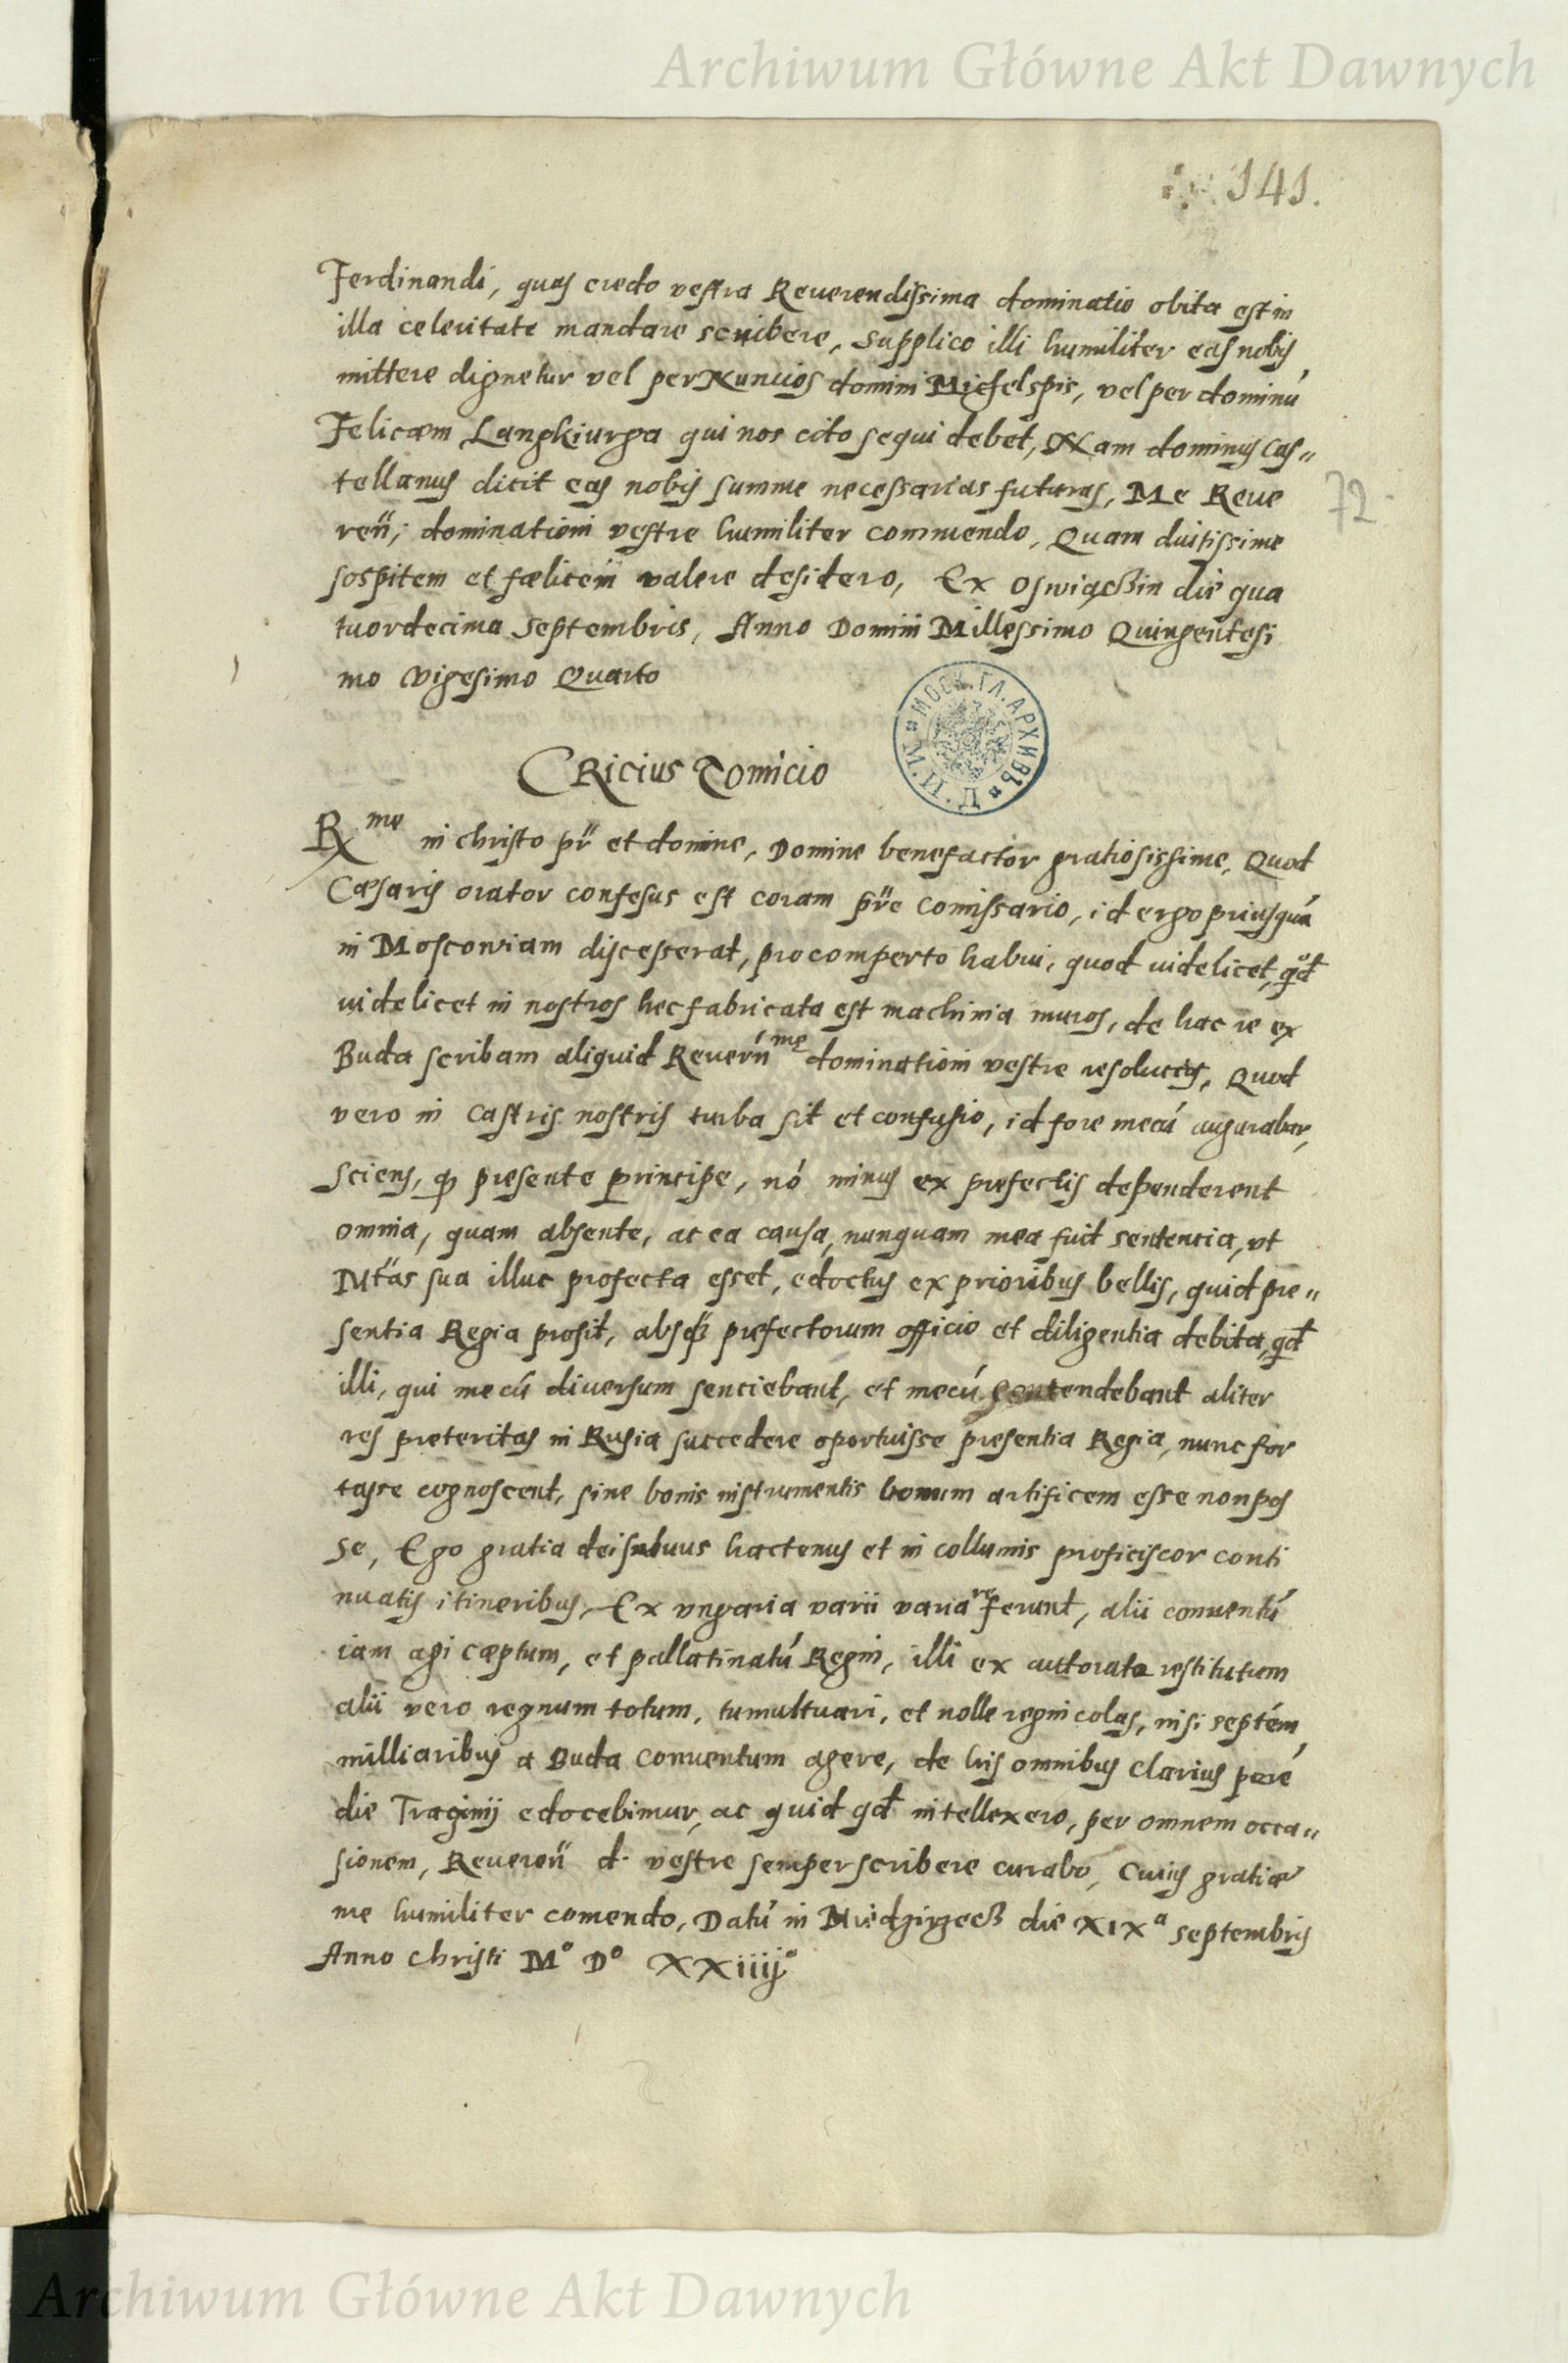 Archiwum Główne Akt Dawnych
141.
Ferdinandi, quas credo vestra Reuerendissima dominatio obita est in
illa celeritate mandare scribere, supplico illi humiliter eas nobis
mittere dignetur vel per Nuncios domini Michelspis, vel per dominú
Felicem Langkiurga qui nos cito sequi debet, Nam dominus Cas„
tellanus dicit eas nobis summe necessarias futuras, Me Reue
72
reñ; dominationi vestre humiliter commendo, Quam diutissime
sospitem et fœlicem valere desidero, Ex Oswiaczin die qua
tuordecima Septembris, Anno Domini Millessimo Quingentesi
mo Vigesimo Quarto
МОСК. ГЛ. АРХИВЪ
Cricius Tomicio
Rme in christo pr̃ et domine, Domine benefactor gratiosissime, Quod
Cæsaris orator confesus est coram pr̃e Comissario, id ergo priusquá
in Moscouiam discesserat, pro comperto habui, quod uidelicet, qđ
uidelicet in nostros hec fabricata est machina muros, de hac re ex
Buda scribam aliquid Reuerńme dominationi vestre resolutius, Quod
vero in castris nostris turba sit et confusio, id fore mecú augurabar,
sciens, qꝫ presente principe, nó minus ex prefectis dependerent
omnia, quam absente, ac ea causa, nunquam mea fuit sententia, vt
Mtas sua illuc profecta esset, edoctus ex prioribus bellis, quid pre„
sentia Regia prosit, absqꝫ prefectorum officio et diligentia debita, qđ
illi, qui mecú diuersum senciebant, et mecú contendebant aliter
res preteritas in Rusia succedere oportuisse presentia Regia, nunc for
tasse cognoscent, sine bonis instrumentis bonum artificem esse non pos
se, Ego gratia dei saluus hactenus et in collumis proficiscor conti
nuatis itineribus, Ex vngaria varii varia referunt, alii conuentú
iam agi cæptum, et pallatinatú Regni, illi ex auttorato restitutum
alii vero regnum totum, tumultuari, et nolle regnicolas, nisi septém
milliaribus a Buda conuentum agere, de his omnibus clarius
die edocebimur, ac quid qđ intellexero, per omnem occa„
sionem, Reuereñ d. vestre semper scribere curabo, Cuius gratiæ
me humiliter comendo, Datú in die XIXa septembris
Anno Christi Mo Do XXiiijo
Archiwum Główne Akt Dawnych